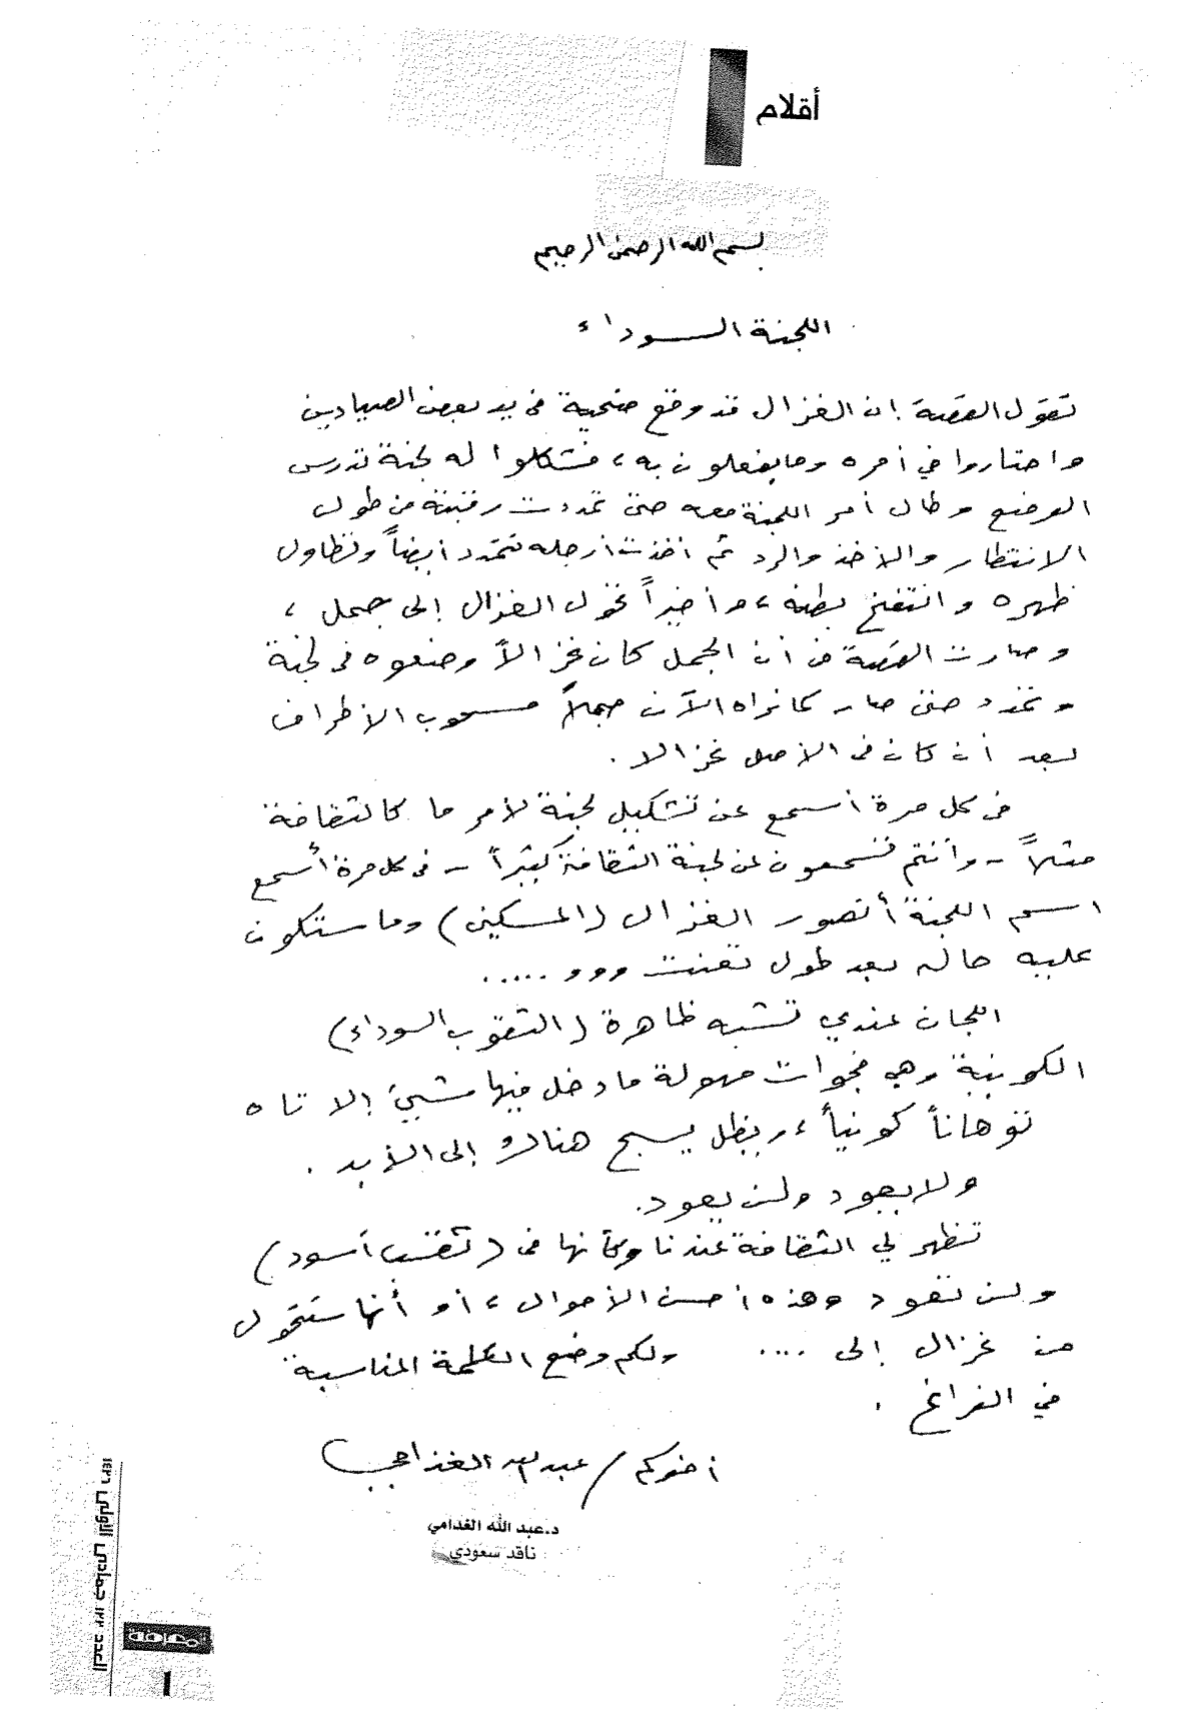 أقلام
بسم الله الرحمن الرحيم
اللجنة السوداء
تقول القصة إن الغزال قد وقع ضحية في يد بعض الصيادين
واحتاروا في أمره وما يفعلون به، فشكلوا له لجنة تدرس
الوضع وطال أمر اللجنة معه حتى تمددت رقبته من طول
الانتظار والأخذ والرد ثم أخذت أرجله تتمدد أيضاً وتطاول
ظهره وانتفخ بطنه، وأخيراً تحول الغزال إلى جمل،
وصارت القصة من أن الجمل كان غزالاً وضعوه في لجنة
وتمدد حتى صار كما نراه الآن جملاً مسحوب الأطراف
بعد أن كان في الأصل غزالا.
في كل مرة أسمع عن تشكيل لجنة لأمر ما كالثقافة
مثلاً - وأنتم تسمعون عن لجنة الثقافة كثيراً - في كل مرة أسمع
اسم اللجنة أتصور الغزال (المسكين) وما ستكون
عليه حاله بعد طول تعنت ووو .....
اللجان عندي تشبه ظاهرة (الثقوب السوداء)
الكونية وهي فجوات مهولة ما دخل فيها شيئ إلا تاه
توهاناً كونياً، ويظل يسبح هناك إلى الأبد.
ولا يعود ولن يعود.
تظهر لي الثقافة عندنا وكأنها في (ثقب أسود)
ولن تعود وهذه أحسن الأحوال، أو أنها ستتحول
من غزال إلى .... ولكم وضع الكلمة المناسبة
في الفراغ.
أخوكم / عبد الله الغذامي
د.عبد الله الغذامي
ناقد سعودي
العدد ١٢٢ جمادى الأولى ١٤٢٦
المعرفة
١